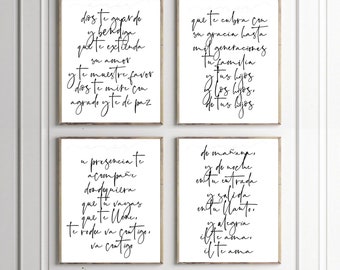 dios te guarde
y bendiga
que te extienda
su amor
y te muestre favor
dios te mire con
agrado y te de paz
que te cubra con
su gracia hasta
mil generaciones
tu familia
y tus hijos
y los hijos,
de tus hijos
u presencia te
acompañe
dondequiera
que tu vayas
que te llene,
te rodee va contigo,
va contigo
de mañana,
y de noche
en tu entrada
y salida
en tu llanto,
y alegria
él te ama,
él te ama